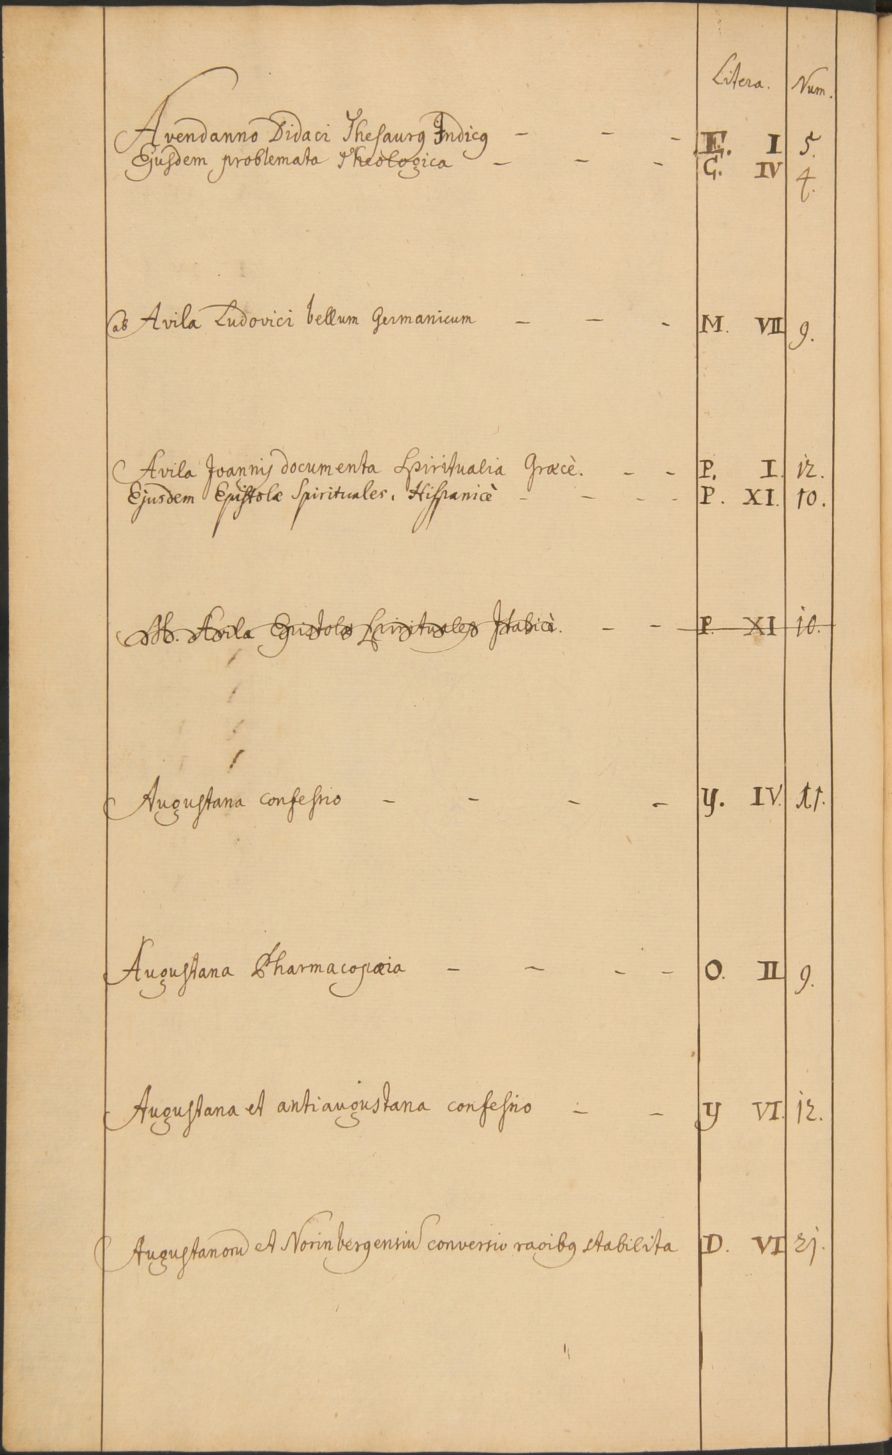 Litera. Num.
Avendanno Didaci Thesaurꝯ Indicꝯ - - - E. I 5.
Ejusdem problemata Theologica - - - G. IV 4.
ab Avila Ludovici bellum Germanicum - - - M. VII 9.
Avila Joannis documenta Spiritualia Græcè. - - P. I. 12.
Ejusdem Epistolæ Spirituales. Hispanicè - - - - P. XI. 10.
Avila Epistolæ Spirituales Italicè. - - P. XI 10.
Augustana confessio - - - - Y. IV. 11.
Augustana Pharmacopæia - - - - O. II 9.
Augustana et antiaugustana confessio - - Y VI. 12.
Augustanorū et Norinbergensiū conversio raõibꝯ stabilita D. VI 21.